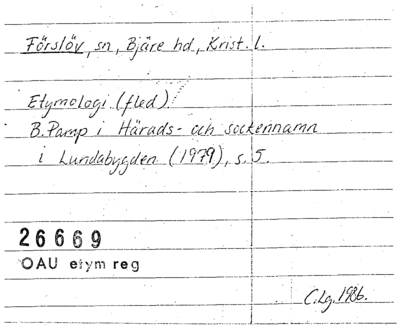 Förslöv, sn, Bjäre hd, Krist. l.
Etymologi (fled).
B. Pamp i Härads- och sockennamn
i Lundabygden (1979), s. 5.
26669
OAU etym reg
C.Lg. 1986.